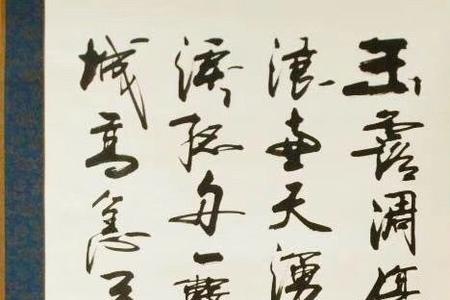 玉露凋傷
浪兼天湧
淚孤舟一繫
城高急